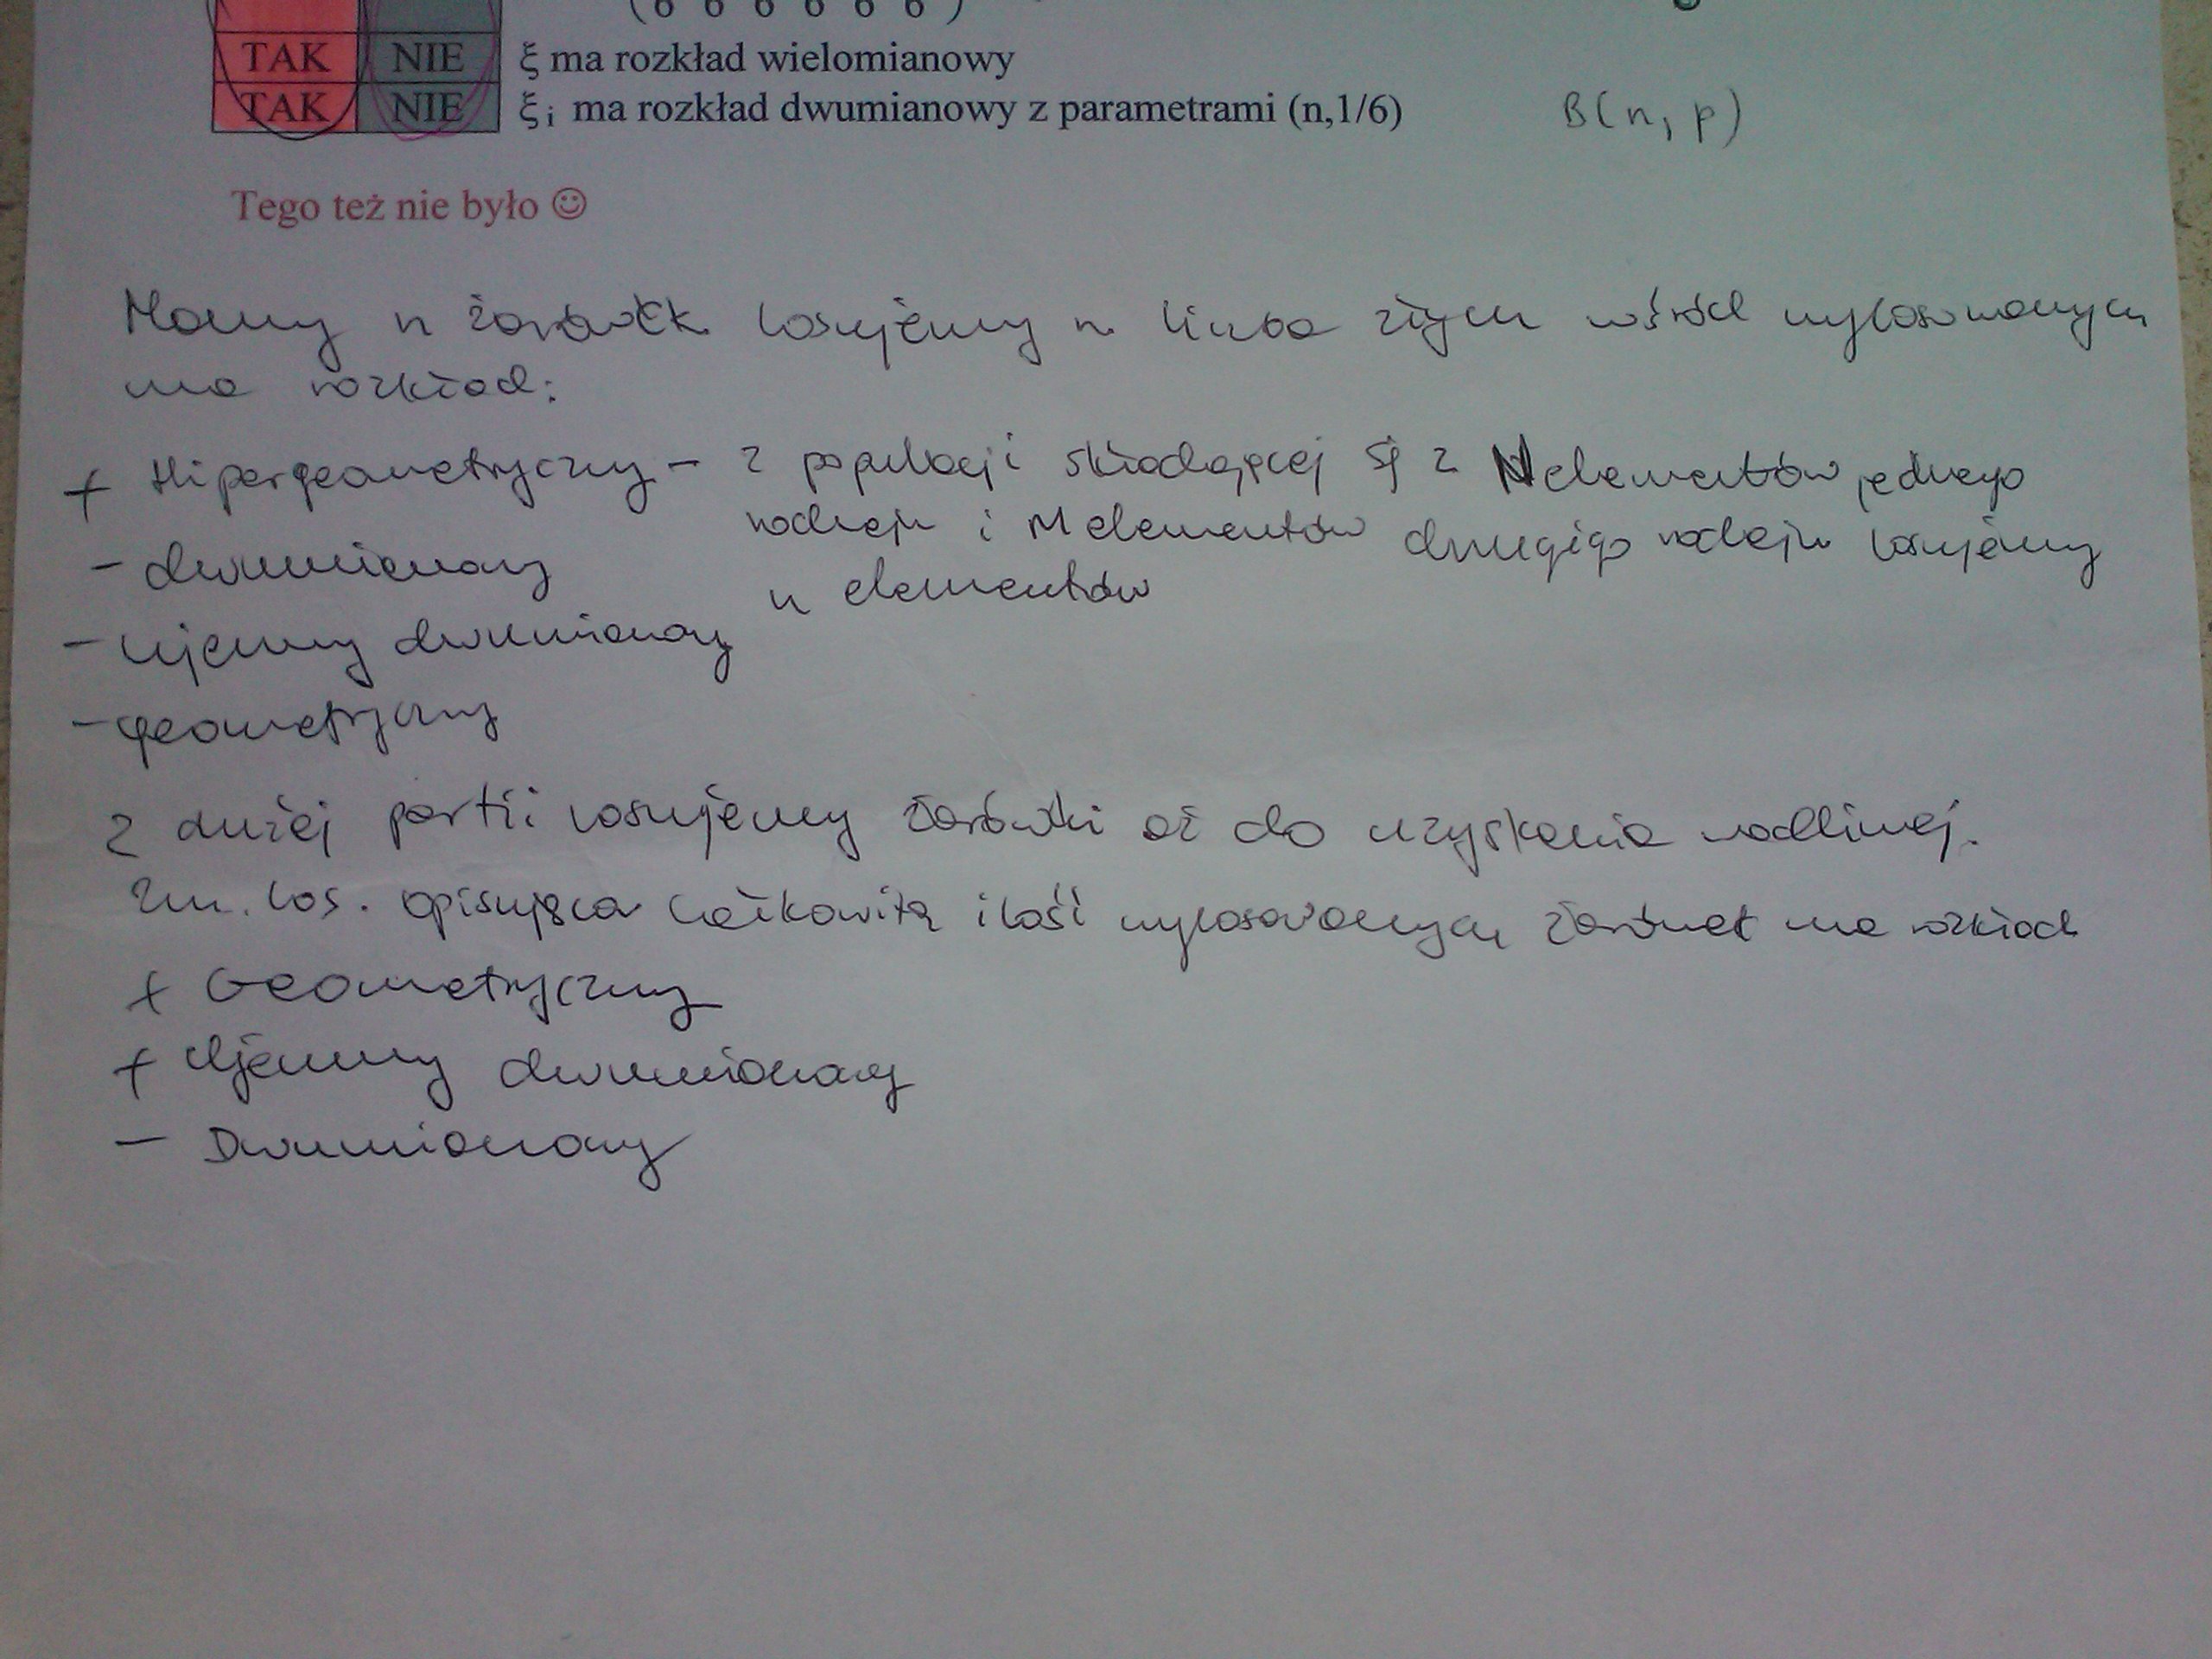 (6 6 6 6 6 6)
TAK NIE ξ ma rozkład wielomianowy
TAK NIE ξi ma rozkład dwumianowy z parametrami (n,1/6) B(n, p)
Tego też nie było ☺
Mamy n żarówek losujemy n liczba złych wśród wylosowanych
ma rozkład:
+ Hipergeometryczny – z populacji składającej się z N elementów jednego
rodzaju i M elementów drugiego rodzaju losujemy
n elementów
- dwumianowy
- ujemny dwumianowy
- geometryczny
Z dużej partii losujemy żarówki aż do uzyskania wadliwej.
Zm. los. opisująca całkowitą ilość wylosowanych żarówek ma rozkład
+ Geometryczny
+ Ujemny dwumianowy
- Dwumianowy